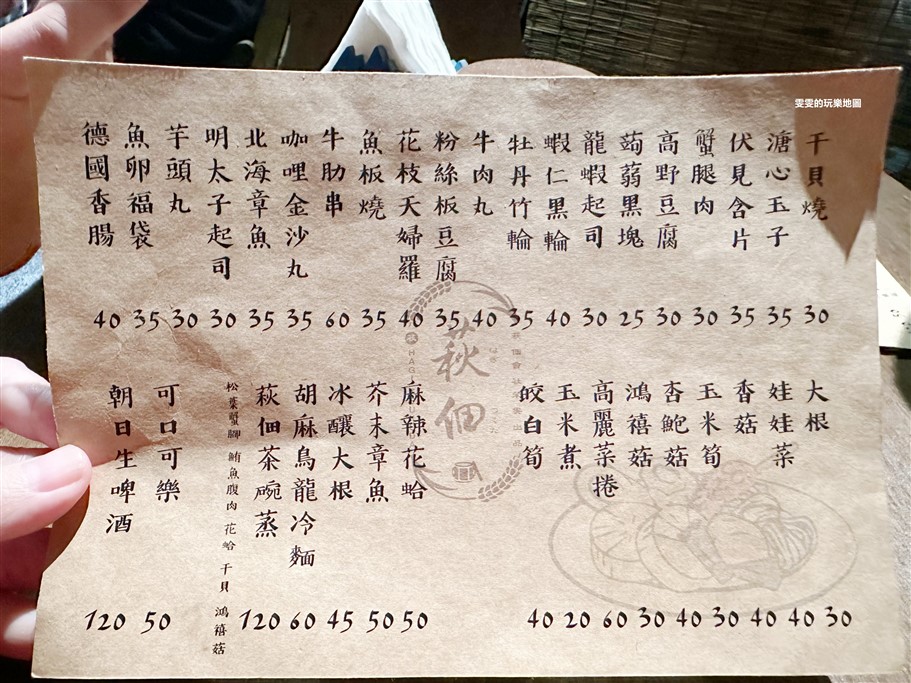 雯雯的玩樂地圖
干貝燒 30
溏心玉子 35
伏見含片 35
蟹腿肉 30
高野豆腐 30
蒟蒻黑塊 25
龍蝦起司 30
蝦仁黑輪 40
牡丹竹輪 35
牛肉丸 40
粉絲板豆腐 35
花枝天婦羅 40
魚板燒 35
牛肋串 60
咖哩金沙丸 35
北海章魚 35
明太子起司 30
芋頭丸 30
魚卵福袋 35
德國香腸 40
萩佃
大根 30
娃娃菜 40
香菇 40
玉米筍 30
杏鮑菇 40
鴻禧菇 30
高麗菜捲 60
玉米煮 20
皎白筍 40
麻辣花蛤 50
芥末章魚 50
冰釀大根 45
胡麻鳥龍冷麵 60
萩佃茶碗蒸 120
松葉蟹腳 鮪魚腹肉 花蛤 干貝 鴻禧菇
可口可樂 50
朝日生啤酒 120